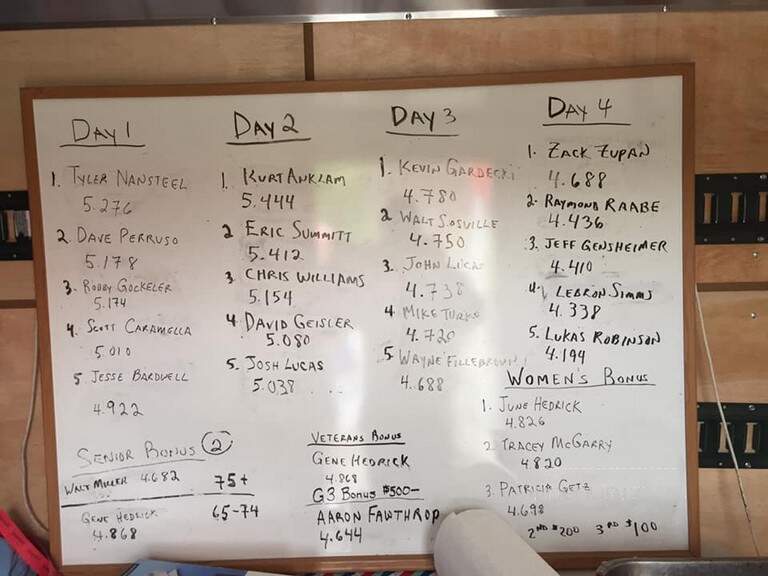 DAY 1
1. TYLER NANSTEEL
5.276
2. DAVE PERRUSO
5.178
3. ROBBY GOCKELER
5.174
4. SCOTT CARAMELLA
5.010
5. JESSE BARDWELL
4.922
DAY 2
1. KURT ANKLAM
5.444
2 ERIC SUMMITT
5.412
3 CHRIS WILLIAMS
5.154
4 DAVID GEISLER
5.080
5. JOSH LUCAS
5.038
DAY 3
1. KEVIN GARDECKI
4.780
2 WALT SOSVILLE
4.750
3. JOHN LUCAS
4.738
4 MIKE
4.720
5 WAYNE FILLEBROWN
4.688
DAY 4
1. ZACK ZUPAN
4.688
2. RAYMOND RAABE
4.436
3. JEFF GENSHEIMER
4.410
4. LEBRON SIMMS
4.338
5. LUKAS ROBINSON
4.194
SENIOR BONUS 2
WALT MILLER 4.682 75+
GENE HEDRICK 65-74
4.868
VETERANS BONUS
GENE HEDRICK
4.868
G3 BONUS $500-
AARON FAWTHROP
4.644
WOMEN'S BONUS
1. JUNE HEDRICK
4.826
2 TRACEY MCGARRY
4.820
3. PATRICIA GETZ
4.698
2ND $200 3RD $100